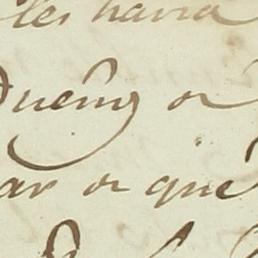 les havia
Dueños o
ar o que